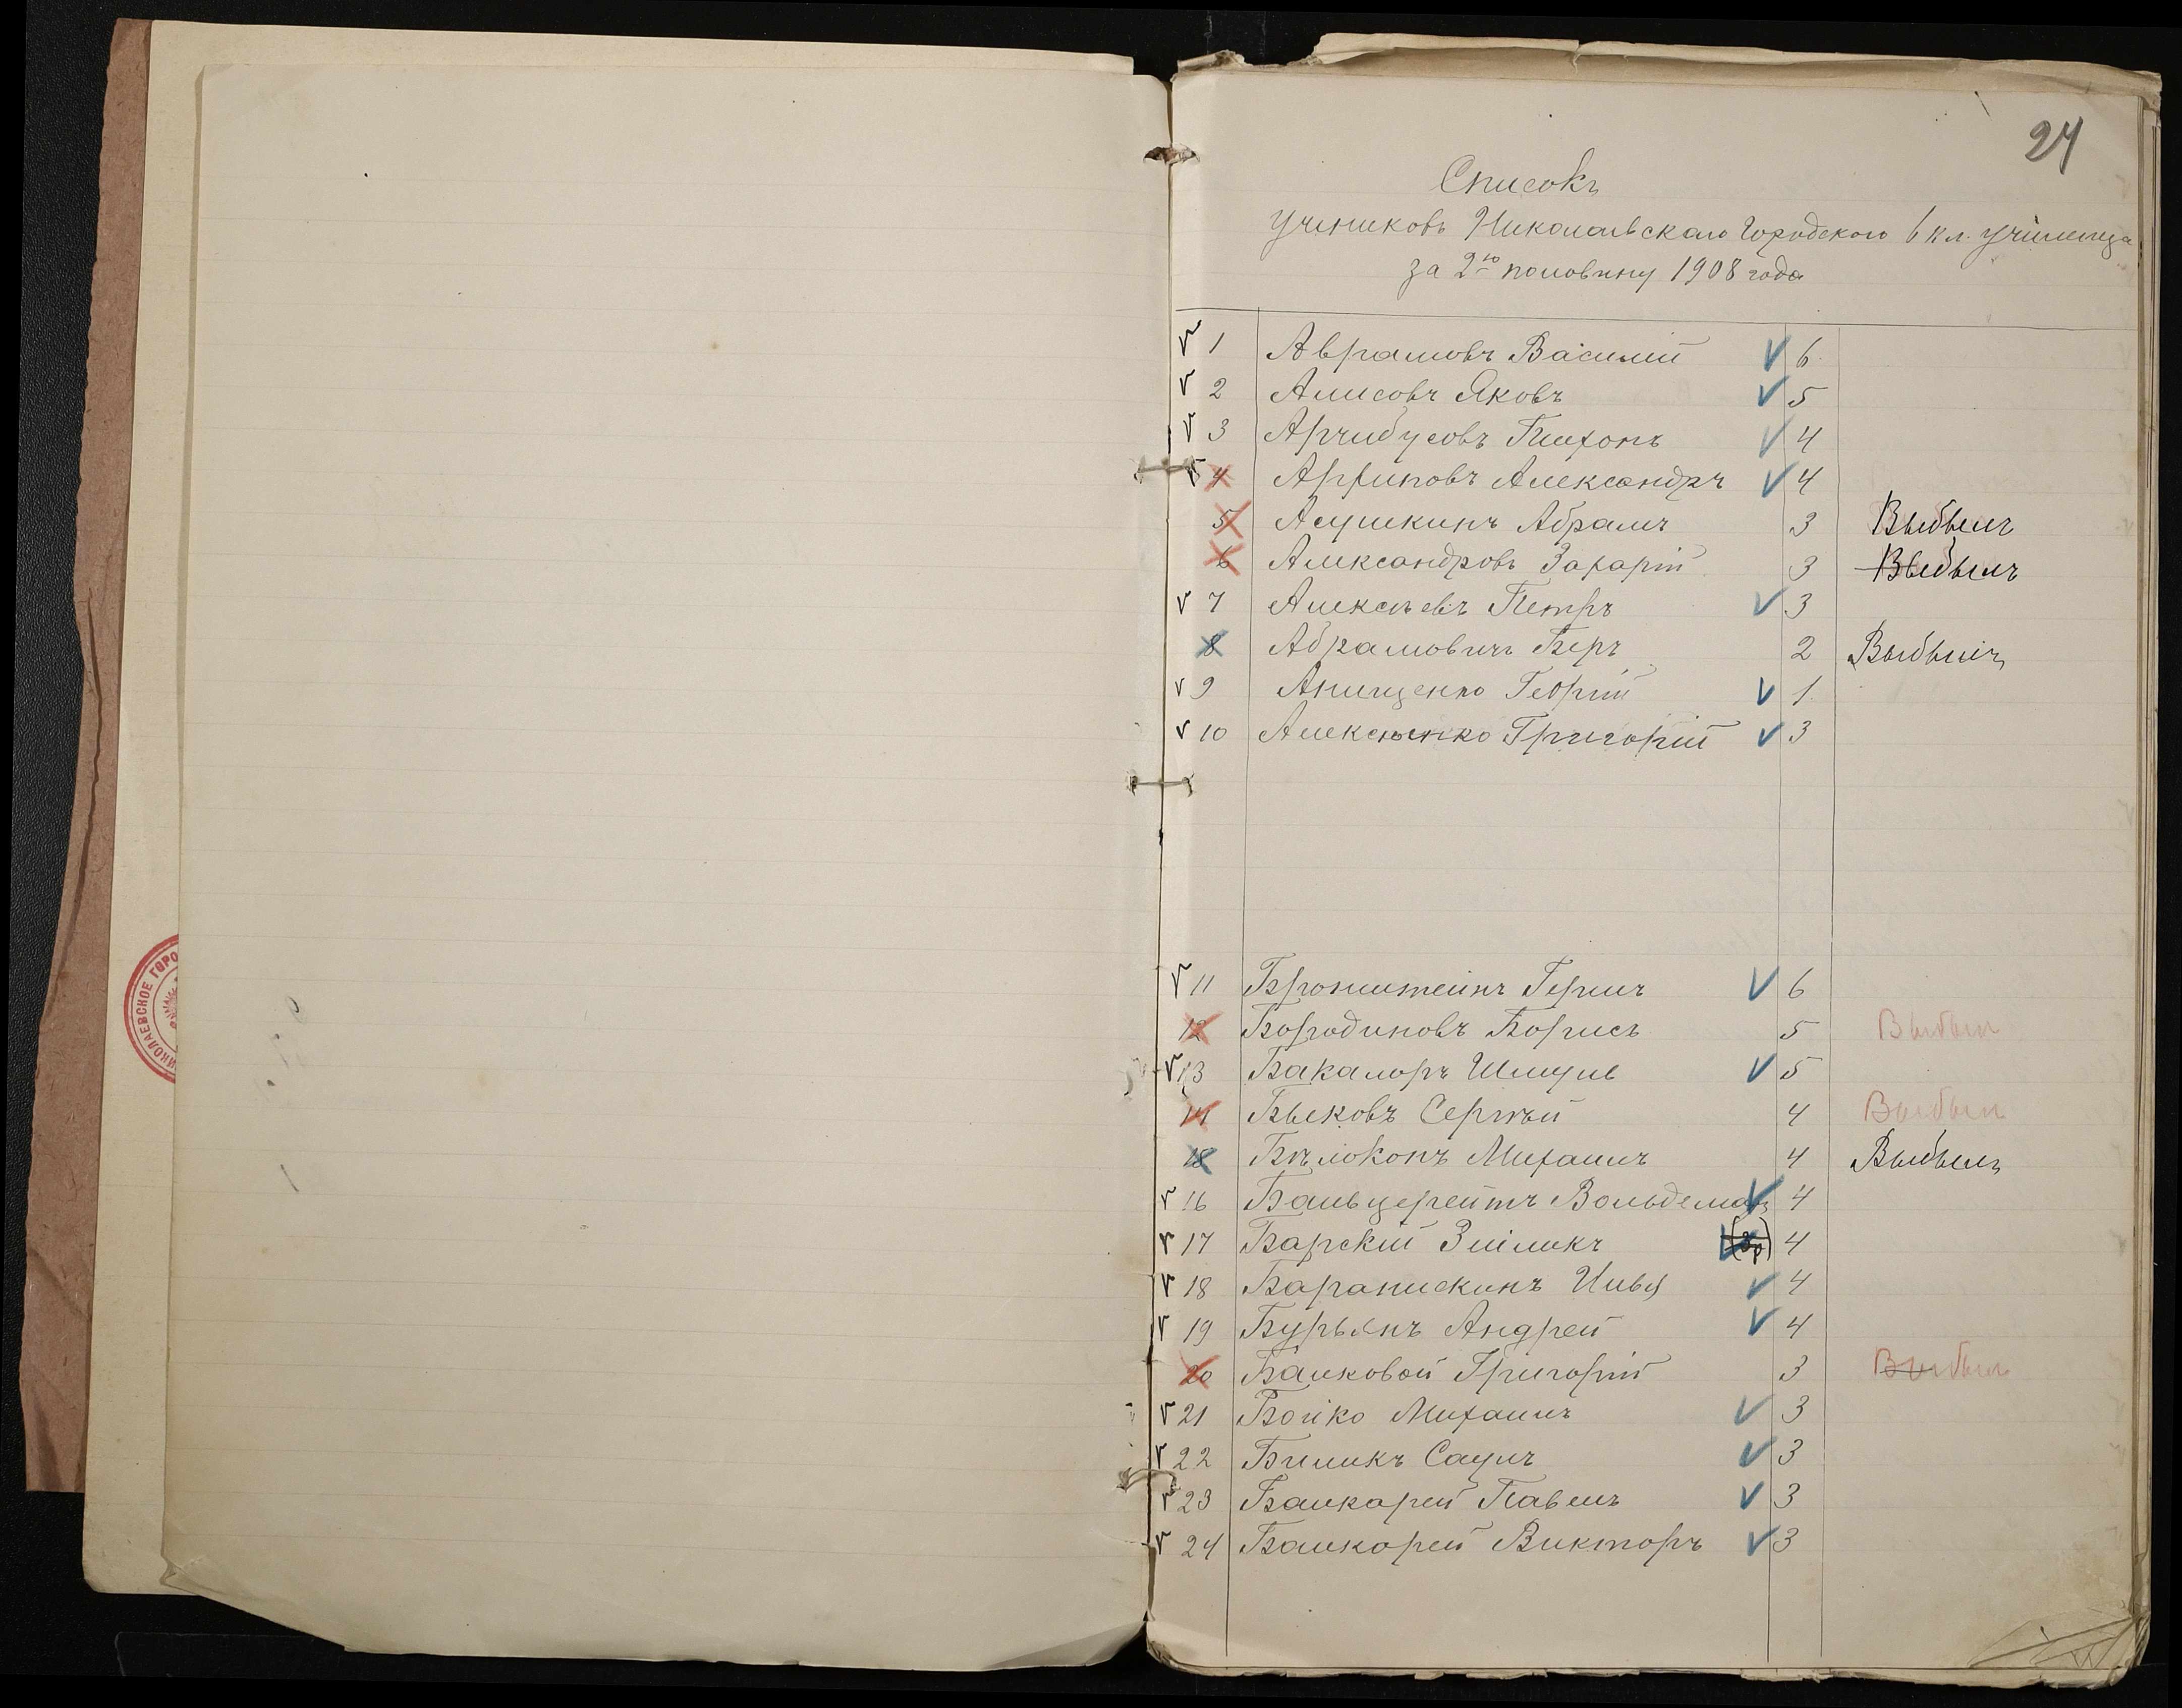 24
Списокъ
учениковъ Николаевскаго Городского 6 кл. училища
за 2ую половину 1908 года
1 Аврамовъ Василий 6
2 Алисовъ Яковъ 5
3 Арчибусовъ Тихонъ 4
4 Арфиновъ Александръ 4
5 Асушкинъ Абрамъ 3 Выбылъ
6 Александровъ Захарій 3 Выбылъ
7 Алексѣевъ Петръ 3
8 Абрамовичъ Беръ 2 Выбылъ
9 Анищенко Георгій 1
10 Алексѣенко Григорій 3
11 Бронштейнъ Гершъ 6
12 Бородиновъ Борисъ 5 Выбыл
13 Бакаляръ Шмуль 5
14 Быковъ Сергѣй 4 Выбыл
15 Бѣлоконъ Михаилъ 4 Выбылъ
16 Бальцерейтъ Вольдемаръ 4
17 Барскій Зейликъ 4
18 Баранискинъ Илья 4
19 Бурьянъ Андрей 4
20 Балковой Григорій 3 Выбыл
21 Бойко Михаилъ 3
22 Биликъ Саулъ 3
23 Балкарей Павелъ 3
24 Балкарей Викторъ 3
НИКОЛАЕВСКОЕ ГОРО